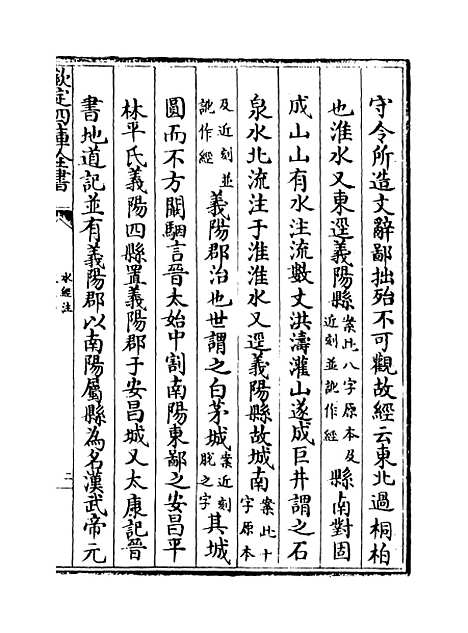 守令所造文辭鄙拙殆不可觀故經云東北過桐柏
也淮水又東逕義陽縣案此八字原本及近刻並訛作經縣南對固
成山山有水注流數丈洪濤灌山遂成巨井謂之石
泉水北流注于淮淮水又逕義陽縣故城南案此十字原本
及近刻並訛作經義陽郡治也世謂之白茅城案近刻脫之字其城
圓而不方闞駰言晉太始中割南陽東鄙之安昌平
林平氏義陽四縣置義陽郡于安昌城又太康記晉
書地道記並有義陽郡以南陽屬縣為名漢武帝元
欽定四庫全書
水經注